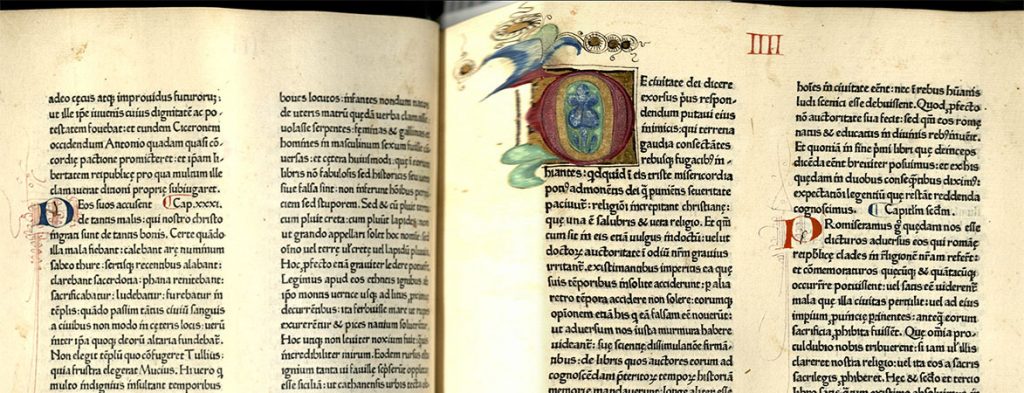 adeo cęcus atq; improvidus futuroruʒ:
ut ille ip̄e iuvenis cuius dignitatē ac po-
testatem fouebat: et eundem Ciceronem
occidendum Antonio quadam quasi cō-
cordię pactione promicteret: et ip̄am li-
bertatem reipublicę pro qua multum ille
clamauerat dicioni proprię subiugaret.
DEos suos accusent Cap.xxxi.
de tantis malis: qui nostro christo
ingrati sunt de tantis bonis. Certe quādo
illa mala fiebant: calebant arę numinum
sabeo thure: sertisq; recentibus alabant:
clarebant sacerdotia: phana renitebant:
sacrificabatur: ludebatur: furebatur in
tēplis: quādo passim tātus ciuiū sanguis
a ciuibus non modo in cęteris locis: uerū
inter ip̄a quoq; deorū altaria fundebat̄.
Non elegit tēplū quo cōfugeret Tullius:
quia frustra elegerat Mucius. Hi uero q̄
multo indignius insultant temporibus
boues locutos: infantes nondum natos
de uteris matrū quędā verba clamasse:
uolasse serpentes: fęminas & gallinas et
homines in masculinum sexum fuisse cō-
uersas: et cętera huiusmodi: quę ī eorum
libris nō fabulosis sed historicis seu uera
siue falsa sint: non inferunt hōibus perni-
ciem sed stuporem. Sed & cū pluit terra:
cum pluit creta: cum pluūt lapides: non
ut grando appellari solet hoc nomine: sed
ośno uel terre uscrete: uel lapidū
Hoc, p̄fecto etiā grauiter lędere potuer̄t.
Legimus apud eos ethneis ignibus ab
ip̄o montis vertice usq; ad littus, proxi-
decurrētibus: ita ferbuisse mare ut rupes
exurerētur & pices nauium soluerēt̄.
Hoc utiq; non leuiter noxium fuit
incredibiliter mirum. Eodem rursus
ignium tanta vi fauille scp̄serūt opplet
esse siciliā: ut cathanensis urbis tecta ob
IIII
DE ciuitate dei dicere
exorsus p̄us respon-
dendum putavi eius
inimicis: qui terrena
gaudia consectātes
rebusq; fugacibꝰ in-
hiantes: qđquid ī eis triste misericordia
potiꝰ admonēns dei q̄ punientis seueritate
paciuut̄: religiōi increpitant christianę:
que una ē salubris & uera religio. Et qm̄
cum sit in eis etiā uulgus indoctū: uelut
doctoꝜ auctoritate ī odiū nr̄m grauius
irritant̄. existimantibus imperitis ea quę
suis tēporibus īsolite acciderunt: p̄ alia
retro tēpora accidere non solere: eorumq;
opīonem etiā his q̄ eā falsam eē nouerūt:
ut adversum nos iusta murmura habere
videant̄: suę scientię dissimulatiōe firmā-
tibus: de libris quos auctores eorum ad
cognoscēdam p̄teritoꝜ tempoꝜ historiā
memorię mandauerunt: longe aliter esse
hoīes in ciuitate eēnt: nec ī rebus hūaīs
ludi scenici esse debuissent. Quod, p̄fecto
nō auctoritate sua fecit: sed qm̄ eos romę
natus & educatus in divinis rebꝰ inuēit.
Et quoniā in fine p̄mi libri quę deinceps
dicēda eēnt breuiter posuimus: et ex his
quędam in duobus consequētibus diximꝰ:
expectatiōi legentiū quę restāt reddenda
cognoscimus. Capitl'm scd'm.
PRomiseramus g̊ quędam nos esse
dicturos adversus eos qui romāę
reip̄blicę clades in r̄ligionē nr̄am referēt:
et cōmemoraturos quęcūq; & quātacūq;
occurr̄re potuissent: uel satis eē viderent̄
mala quę illa ciuitas pertulit: uel ad eius
imperiū, puincię p̄tinentes: anteq̄ eorum
sacrificia, p̄hibita fuissēt. Que oīa pro-
culdubio nobis tribuerent: si iam ul' illis
clareret nostra religio: uel ita eos a sacris
sacrilegis, p̄hiberet. Hęc & scd̄o et tercio